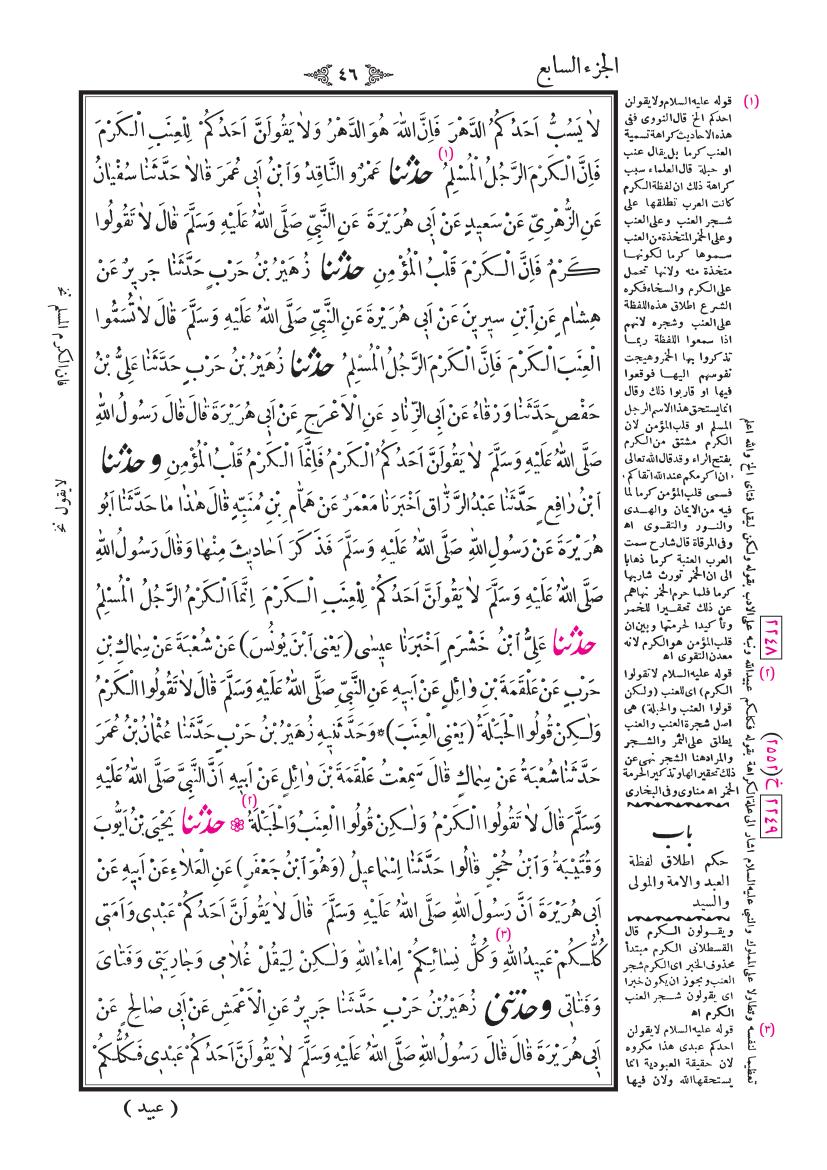 الجزء السابع
٤٦
لَا يَسُبُّ اَحَدُكُمُ الدَّهْرَ فَاِنَّ اللهَ هُوَ الدَّهْرُ وَلَا يَقُولَنَّ اَحَدُكُمْ لِلْعِنَبِ الْكَرْمَ
فَاِنَّ الْكَرْمَ الرَّجُلُ الْمُسْلِمُ (١) حَدَّثَنَا عَمْرٌو النَّاقِدُ وَابْنُ اَبِي عُمَرَ قَالَا حَدَّثَنَا سُفْيَانُ
عَنِ الزُّهْرِيِّ عَنْ سَعِيدٍ عَنْ اَبِي هُرَيْرَةَ عَنِ النَّبِيِّ صَلَّى اللهُ عَلَيْهِ وَسَلَّمَ قَالَ لَا تَقُولُوا
كَرْمٌ فَاِنَّ الْكَرْمَ قَلْبُ الْمُؤْمِنِ حَدَّثَنَا زُهَيْرُ بْنُ حَرْبٍ حَدَّثَنَا جَرِيرٌ عَنْ
هِشَامٍ عَنِ ابْنِ سِيرِينَ عَنْ اَبِي هُرَيْرَةَ عَنِ النَّبِيِّ صَلَّى اللهُ عَلَيْهِ وَسَلَّمَ قَالَ لَا تُسَمُّوا
الْعِنَبَ الْكَرْمَ فَاِنَّ الْكَرْمَ الرَّجُلُ الْمُسْلِمُ حَدَّثَنَا زُهَيْرُ بْنُ حَرْبٍ حَدَّثَنَا عَلِيُّ بْنُ
حَفْصٍ حَدَّثَنَا وَرْقَاءُ عَنْ اَبِي الزِّنَادِ عَنِ الْاَعْرَجِ عَنْ اَبِي هُرَيْرَةَ قَالَ قَالَ رَسُولُ اللهِ
صَلَّى اللهُ عَلَيْهِ وَسَلَّمَ لَا يَقُولَنَّ اَحَدُكُمُ الْكَرْمُ فَاِنَّمَا الْكَرْمُ قَلْبُ الْمُؤْمِنِ وَحَدَّثَنَا
ابْنُ رَافِعٍ حَدَّثَنَا عَبْدُ الرَّزَّاقِ اَخْبَرَنَا مَعْمَرٌ عَنْ هَمَّامِ بْنِ مُنَبِّهٍ قَالَ هٰذَا مَا حَدَّثَنَا اَبُو
هُرَيْرَةَ عَنْ رَسُولِ اللهِ صَلَّى اللهُ عَلَيْهِ وَسَلَّمَ فَذَكَرَ اَحَادِيثَ مِنْهَا وَقَالَ رَسُولُ اللهِ
صَلَّى اللهُ عَلَيْهِ وَسَلَّمَ لَا يَقُولَنَّ اَحَدُكُمْ لِلْعِنَبِ الْكَرْمَ اِنَّمَا الْكَرْمُ الرَّجُلُ الْمُسْلِمُ
حَدَّثَنَا عَلِيُّ ابْنُ خَشْرَمٍ اَخْبَرَنَا عِيسٰى (يَعْنِى ابْنَ يُونُسَ) عَنْ شُعْبَةَ عَنْ سِمَاكِ بْنِ
حَرْبٍ عَنْ عَلْقَمَةَ بْنِ وَائِلٍ عَنْ اَبِيهِ عَنِ النَّبِيِّ صَلَّى اللهُ عَلَيْهِ وَسَلَّمَ قَالَ لَا تَقُولُوا الْكَرْمُ
وَلٰكِنْ قُولُوا الْحَبَلَةُ (يَعْنِى الْعِنَبَ) * وَحَدَّثَنِيهِ زُهَيْرُ بْنُ حَرْبٍ حَدَّثَنَا عُثْمَانُ بْنُ عُمَرَ
حَدَّثَنَا شُعْبَةُ عَنْ سِمَاكٍ قَالَ سَمِعْتُ عَلْقَمَةَ بْنَ وَائِلٍ عَنْ اَبِيهِ اَنَّ النَّبِيَّ صَلَّى اللهُ عَلَيْهِ
وَسَلَّمَ قَالَ لَا تَقُولُوا الْكَرْمُ وَلٰكِنْ قُولُوا الْعِنَبُ وَالْحَبَلَةُ (٢) حَدَّثَنَا يَحْيَى بْنُ اَيُّوبَ
وَقُتَيْبَةُ وَابْنُ حُجْرٍ قَالُوا حَدَّثَنَا اِسْمَاعِيلُ (وَهُوَ ابْنُ جَعْفَرٍ) عَنِ الْعَلَاءِ عَنْ اَبِيهِ عَنْ
اَبِي هُرَيْرَةَ اَنَّ رَسُولَ اللهِ صَلَّى اللهُ عَلَيْهِ وَسَلَّمَ قَالَ لَا يَقُولَنَّ اَحَدُكُمْ عَبْدِى وَاَمَتِى
كُلُّكُمْ عَبِيدُ اللهِ وَكُلُّ نِسَائِكُمْ اِمَاءُ اللهِ (٣) وَلٰكِنْ لِيَقُلْ غُلَامِى وَجَارِيَتِى وَفَتَاىَ
وَفَتَاتِى وَحَدَّثَنِى زُهَيْرُ بْنُ حَرْبٍ حَدَّثَنَا جَرِيرٌ عَنِ الْاَعْمَشِ عَنْ اَبِي صَالِحٍ عَنْ
اَبِي هُرَيْرَةَ قَالَ قَالَ رَسُولُ اللهِ صَلَّى اللهُ عَلَيْهِ وَسَلَّمَ لَا يَقُولَنَّ اَحَدُكُمْ عَبْدِى فَكُلُّكُمْ
( عبيد )
(١) قوله عليه السلام ولا يقولن
احدكم الخ قال النووى فى
هذه الاحاديث كراهة تسمية
العنب كرما بل يقال عنب
او حبلة قال العلماء سبب
كراهة ذلك ان لفظة الكرم
كانت العرب تطلقها على
شجر العنب وعلى العنب
وعلى الخمر المتخذة من العنب
سموها كرما لكونها
متخذة منه ولانها تحمل
على الكرم والسخاء فكره
الشرع اطلاق هذه اللفظة
على العنب وشجره لانهم
اذا سمعوا اللفظة ربما
تذكروا بها الخمر وهيجت
نفوسهم اليها فوقعوا
فيها او قاربوا ذلك وقال
انما يستحق هذا الاسم الرجل
المسلم او قلب المؤمن لان
الكرم مشتق من الكرم
بفتح الراء وقد قال الله تعالى
ان اكرمكم عند الله اتقاكم
فسمى قلب المؤمن كرما لما
فيه من الايمان والهدى
والنور والتقوى اه
وفى المرقاة قال شارح سمت
العرب العنبة كرما ذهابا
الى ان الخمر تورث شاربها
كرما فلما حرم الخمر نهاهم
عن ذلك تحقيرا للخمر
وتأكيدا لحرمتها وبين ان
قلب المؤمن هو الكرم لانه
معدن التقوى اه
(٢) قوله عليه السلام لا تقولوا
الكرم) اى للعنب (ولكن
قولوا العنب والحبلة) هى
اصل شجرة العنب والعنب
يطلق على الثمر والشجر
والمراد هنا الشجر نهى عن
ذلك تحقيرا لها وتذكير الحرمة
الخمر اه مناوى وفى البخارى
باب
حكم اطلاق لفظة
العبد والامة والمولى
والسيد
ويقولون الكرم قال
القسطلانى الكرم مبتدأ
محذوف الخبر اى الكرم شجر
العنب ويجوز ان يكون خبرا
اى يقولون شجر العنب
الكرم اه
(٣) قوله عليه السلام لا يقولن
احدكم عبدى هذا مكروه
لان حقيقة العبودية انما
يستحقها الله ولان فيها
تعظيما لنفسه وتطاولا على المملوك والنبى عليه السلام اشار الى علة الكراهة بقوله فكلكم عبيد الله ونبه على الادب بقوله ولكن ليقل فتاى الخ والله اعلم
٢٢٤٨
خ (٢٥٥٢)
٢٢٤٩
فان الكرم المسلم نخ
لا يقول نخ